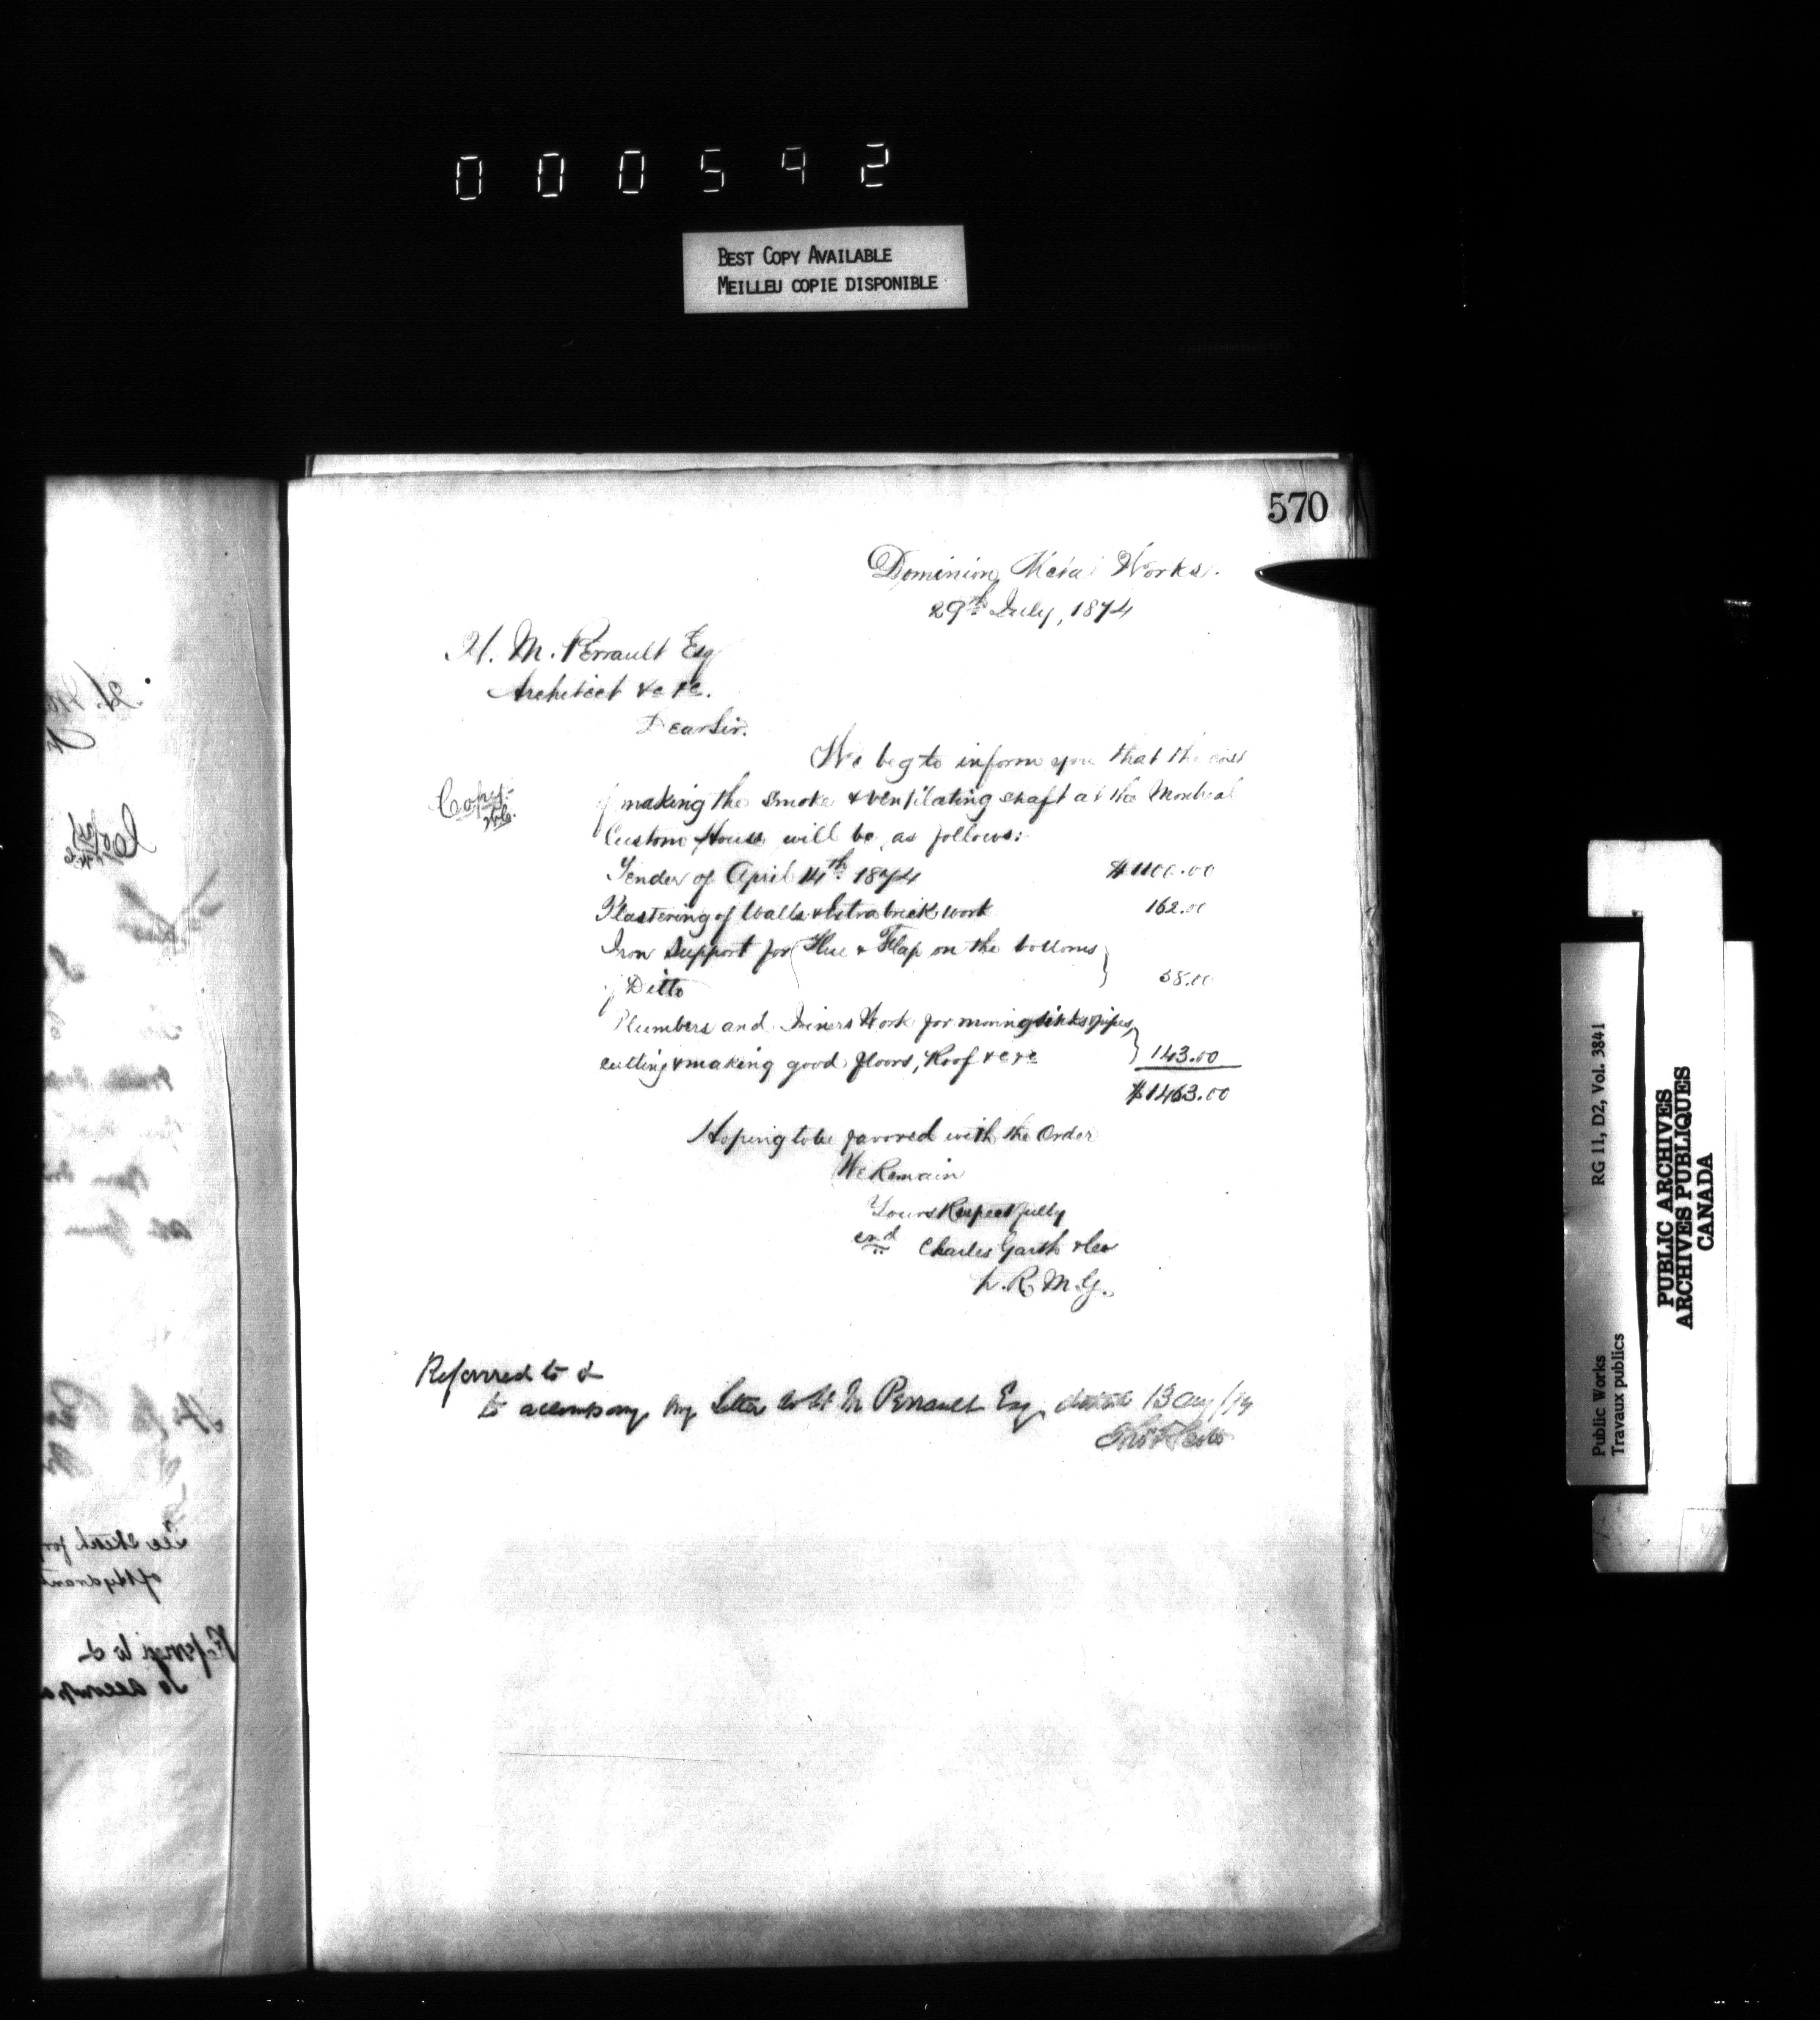 000592
BEST COPY AVAILABLE
MEILLEU COPIE DISPONIBLE
570
Dominion Metal Works.
29th July, 1874
H. M. Perrault Esq
Architect &c &c.
Dear Sir.
We beg to inform you that the cost
Copy.
of making the smoke & ventilating shaft at the Montreal
Custom House will be as follows:
Tender of April 14th 1874 $1100.00
Plastering of Walls & Extra brick work 162.00
Iron Support for Flue & Flap on the bottoms
of Ditto 58.00
Plumbers and Joiners Work for moving sinks & pipes,
cutting & making good floors, Roof &c &c 143.00
$1463.00
Hoping to be favored with the Order
We Remain
Yours Respectfully
Charles Garth & Co
R. M. G.
Referred to &
to accompany my letter to H M Perrault Esq, dated 13 Aug/74
See sketch for
of Hydrant
Referred to &
to accompa
RG 11, D2, Vol. 3841
Public Works
Travaux publics
PUBLIC ARCHIVES
ARCHIVES PUBLIQUES
CANADA